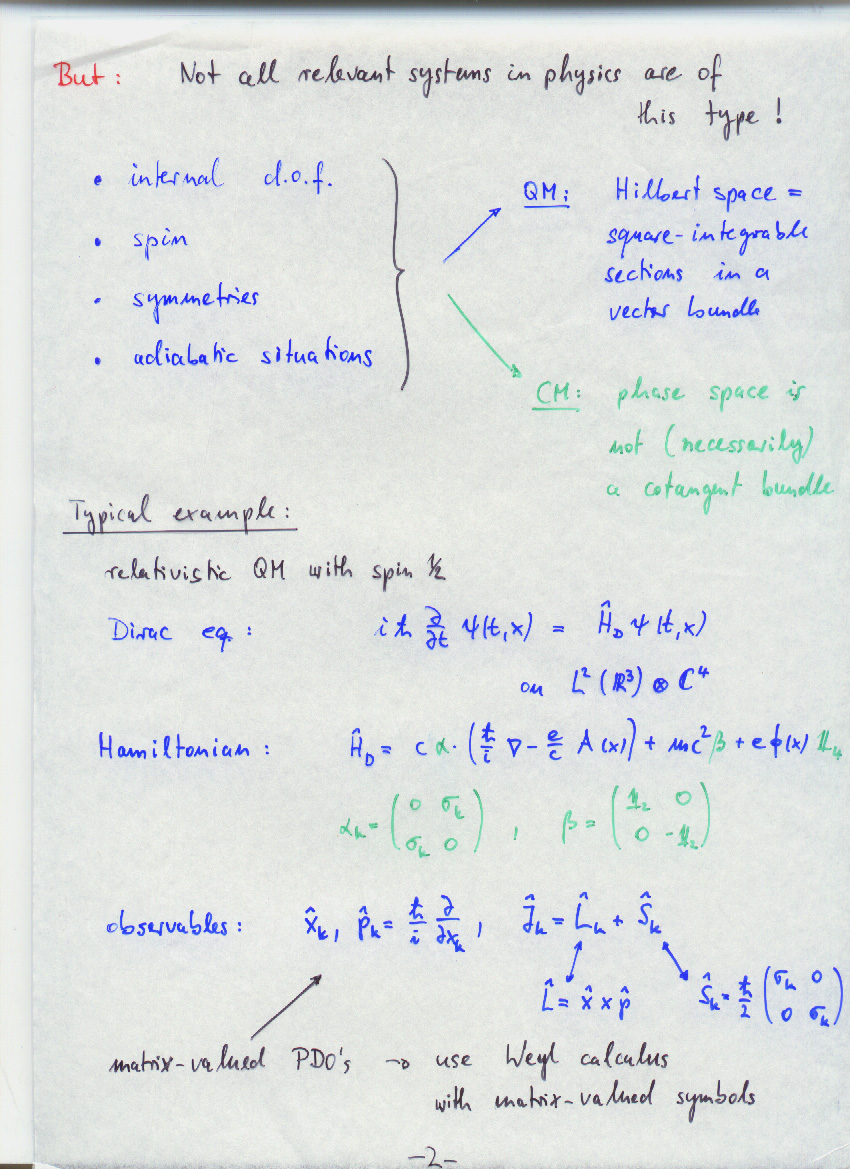 But: Not all relevant systems in physics are of
this type !
• internal d.o.f.
• spin
• symmetries
• adiabatic situations
QM: Hilbert space =
square-integrable
sections in a
vector bundle
CM: phase space is
not (necessarily)
a cotangent bundle
Typical example:
relativistic QM with spin ½
Dirac eq: iℏ ∂/∂t ψ(t,x) = Ĥ_D ψ(t,x)
on L²(ℝ³) ⊗ ℂ⁴
Hamiltonian: Ĥ_D = c α·(ℏ/i ∇ − e/c A(x)) + mc²β + eϕ(x) 𝟙₄
α_k = (0 σ_k; σ_k 0), β = (𝟙₂ 0; 0 −𝟙₂)
observables: x̂_k, p̂_k = ℏ/i ∂/∂x_k, Ĵ_k = L̂_k + Ŝ_k
L̂ = x̂ × p̂ Ŝ_k = ℏ/2 (σ_k 0; 0 σ_k)
matrix-valued PDO's → use Weyl calculus
with matrix-valued symbols
-2-